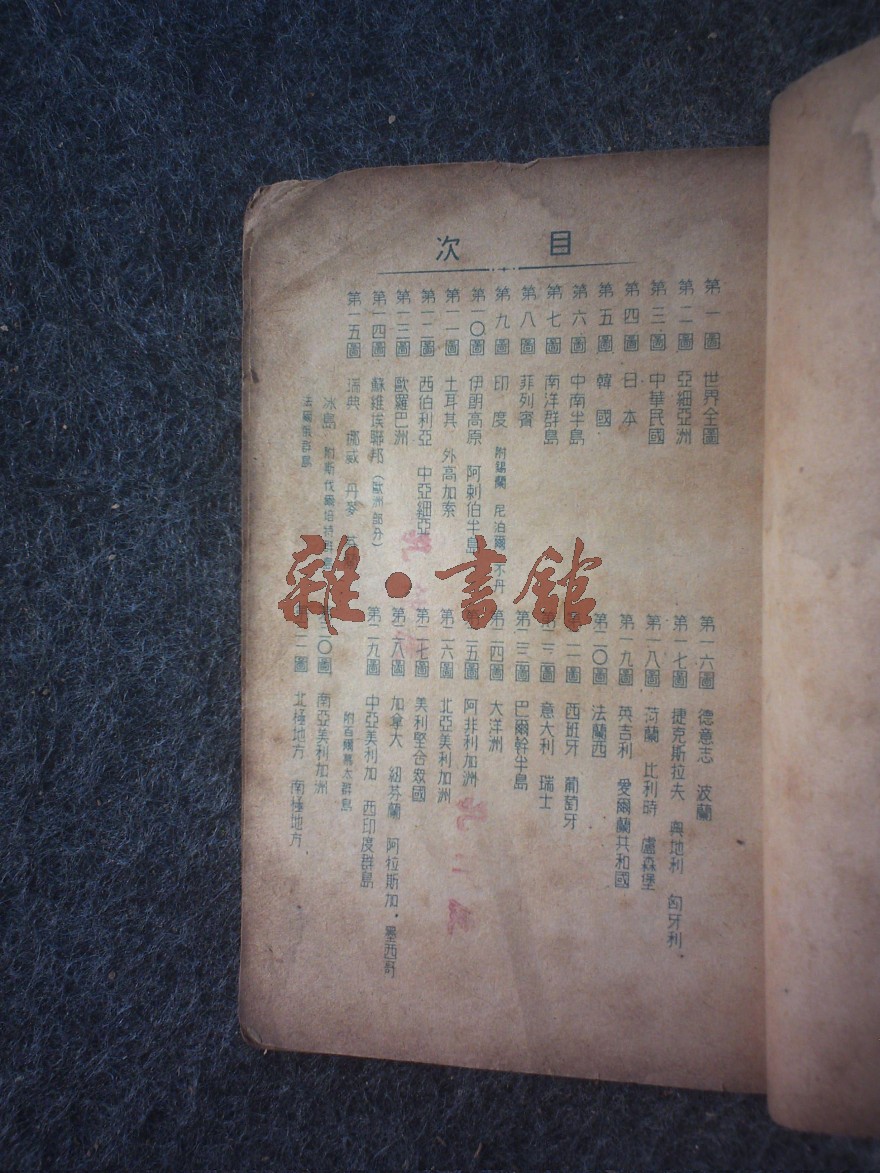 目次
第一圖 世界全圖
第二圖 亞細亞洲
第三圖 中華民國
第四圖 日本
第五圖 韓國
第六圖 中南半島
第七圖 南洋群島
第八圖 菲列賓
第九圖 印度 附錫蘭 尼泊爾 不丹
第一〇圖 伊朗高原 阿剌伯半島
第一一圖 土耳其 外高加索
第一二圖 西伯利亞 中亞細亞
第一三圖 歐羅巴洲
第一四圖 蘇維埃聯邦(歐洲部分)
第一五圖 瑞典 挪威 丹麥
冰島
第一六圖 德意志 波蘭
第一七圖 捷克斯拉夫 奧地利 匈牙利
第一八圖 荷蘭 比利時 盧森堡
第一九圖 英吉利 愛爾蘭共和國
第二〇圖 法蘭西
第二一圖 西班牙 葡萄牙
第二二圖 意大利 瑞士
第二三圖 巴爾幹半島
第二四圖 大洋洲
第二五圖 阿非利加洲
第二六圖 北亞美利加洲
第二七圖 美利堅合衆國
第二八圖 加拿大 紐芬蘭 阿拉斯加·墨西哥
第二九圖 中亞美利加 西印度群島
附百爾慕大群島
第三〇圖 南亞美利加洲
第三一圖 北極地方 南極地方
雜·書館